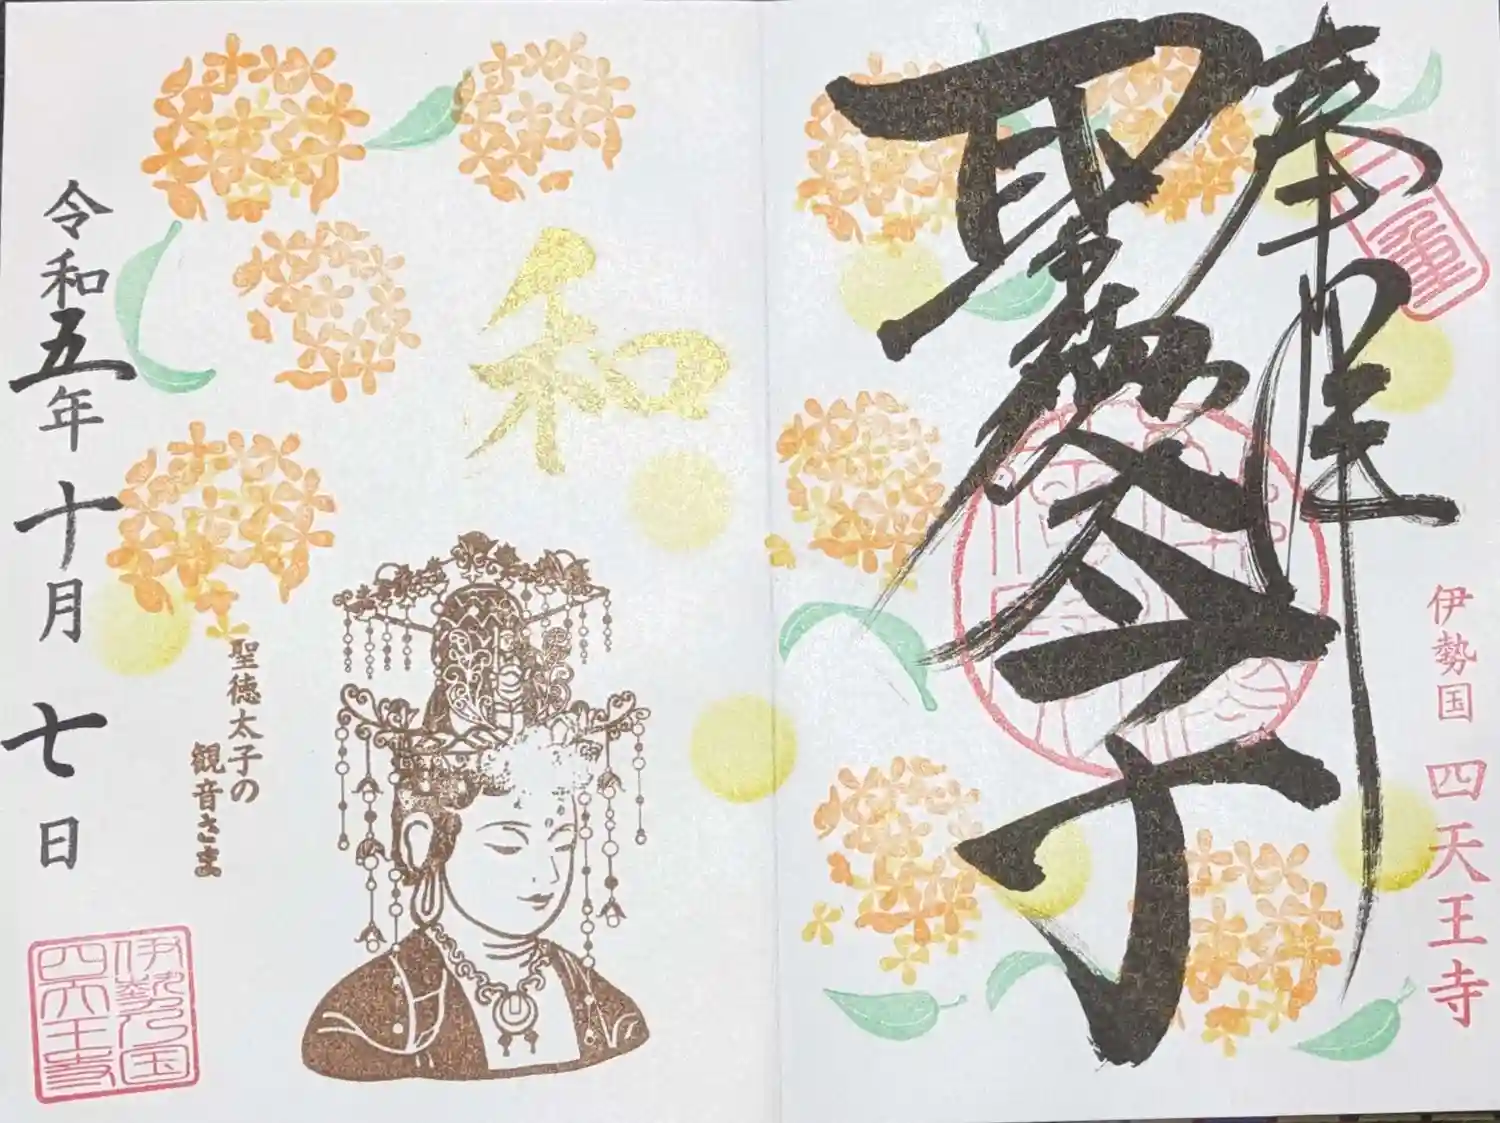 奉拝
聖徳太子
伊勢国 四天王寺
和
聖徳太子の
観音さま
令和五年十月七日
伊勢乃国
四天王寺